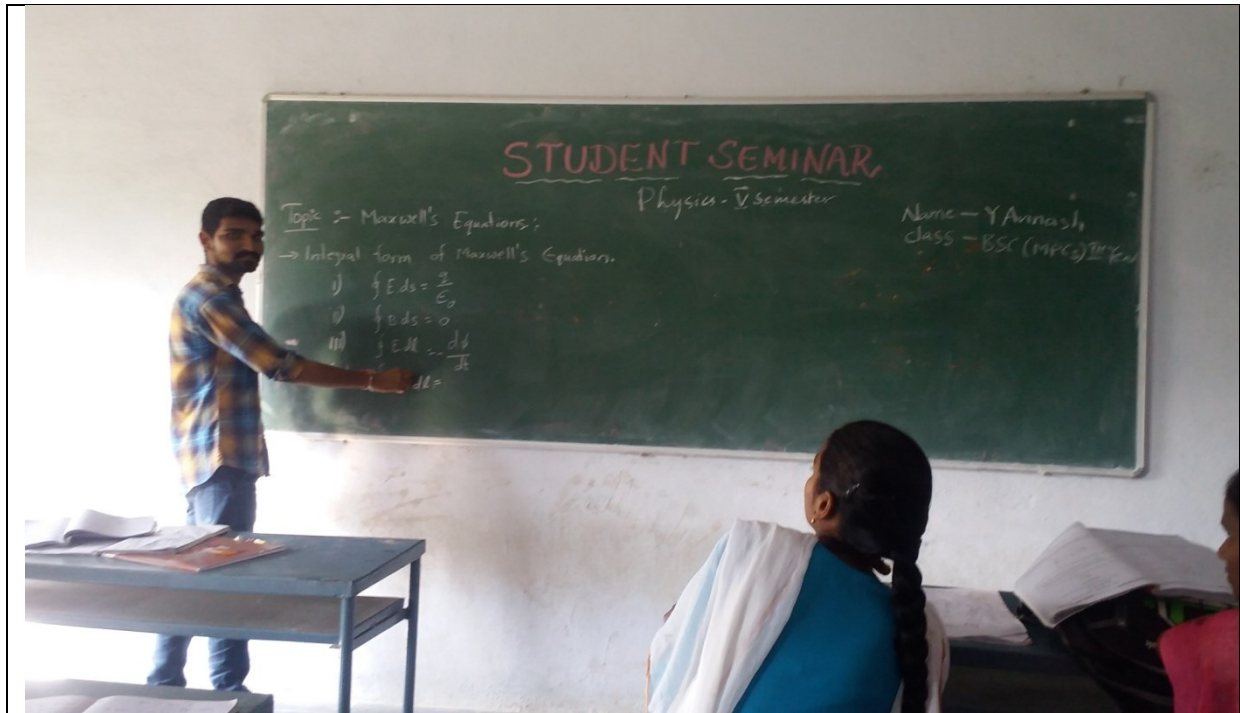 STUDENT SEMINAR
Physics - V Semester
Name - Y Avinash
class - BSC (MPCs) III Year
Topic :- Maxwell's Equations :
→ Integral form of Maxwell's Equation.
i) ∮ E ds = q/ε₀
ii) ∮ B ds = 0
iii) ∮ E dl = - dϕ/dt
dl =